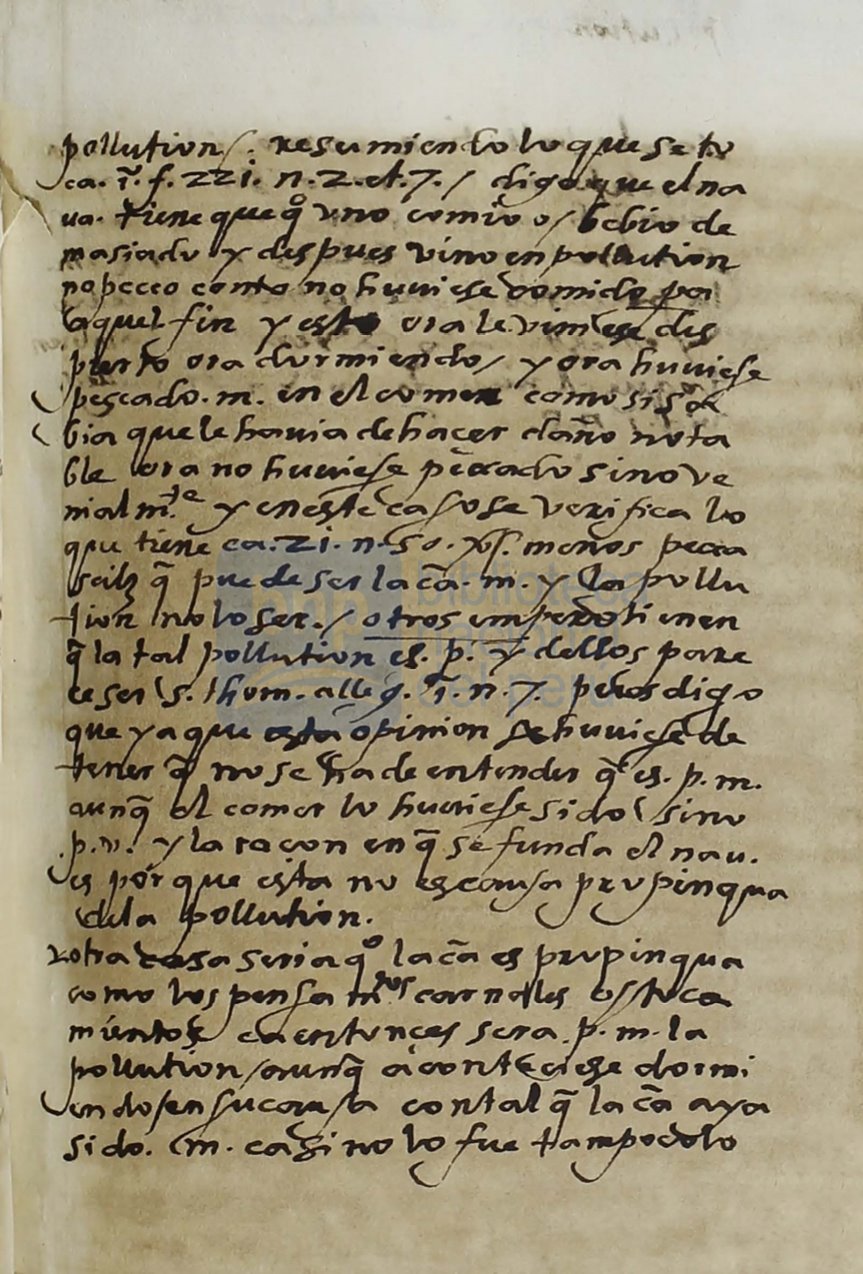 pollution /. resumiendo lo que se to
ca. ĩ. f. 221. n. 2. et. 7. / digo que el na
ua. tiene que qº uno comio o / bebio de
masiado y despues vino en pollution
no pecco conto no huuiese comido pa
aquel fin y esto ora le viniese des
pierto ora durmiendo / y ora huuiese
peccado. m. en el comer como si sa
bia que le hauia de hacer daño nota
ble ora no huuiese peccado sino ve
nialmte y en este caso se verifica lo
que tiene ca. 21. n. 50. menos pecca
scilz q̃ puede ser la cã. m. y la pollu
tion no lo ser. / otros empero tienen
q̃ la tal pollution es. p. y dellos pare
ce ser s. thom. alleg. ĩ. n. 7. pero digo
que ya que esta opinion se huuiese de
tener q̃ no se ha de entender q̃ es. p. m.
aunq̃ el comer lo huuiese sido sino
.p. v. y la raçon en q̃ se funda el nau.
es porque esta no es causa propinqua
de la pollution.
otra cosa seria qº la cã es propinqua
como los pensamtos carnales o stoca
mientos ca entonces sera. p. m. la
pollution / aunq̃ aconteciese dormi
endo / en su causa con tal q̃ la cã aya
sido. m. ca si no lo fue tampoco lo